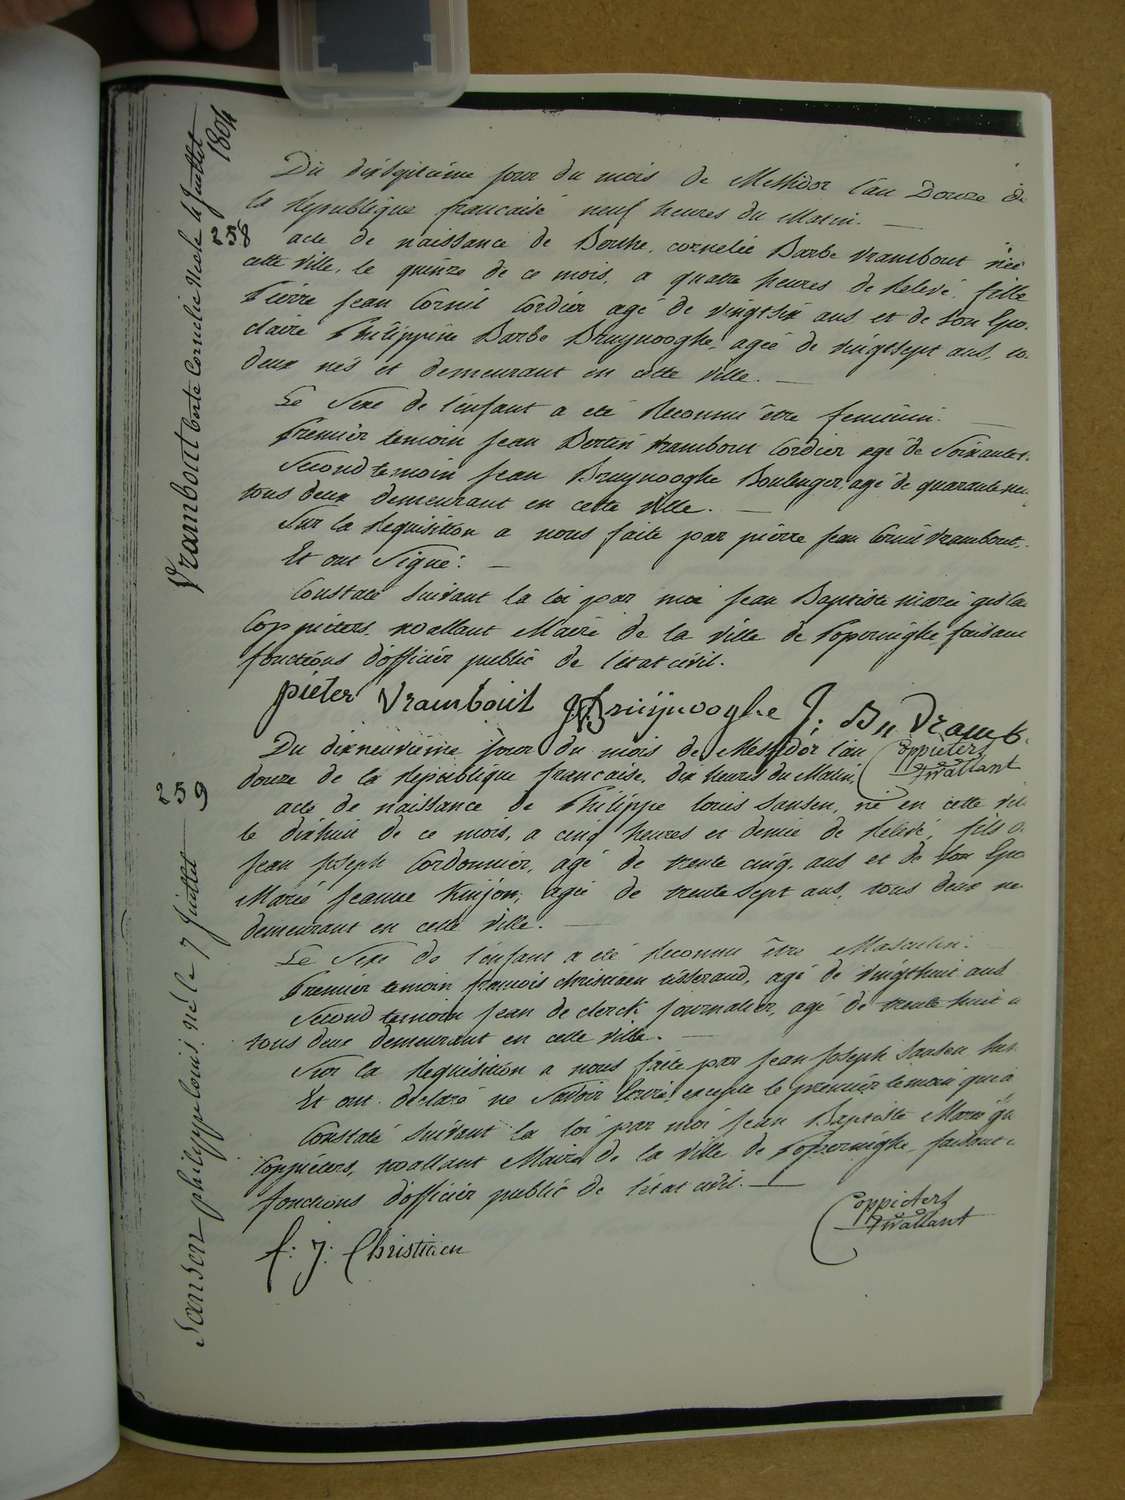 Vrambout Berte Cornelie née le 4 Juillet
1804
Du dixseptième jour du mois de Messidor l'an Douze de
la République francaise neuf heures du Matin.
258
acte de naissance de Berthe, cornelie Barbe Vrambout née
cette ville, le quinze de ce mois, a quatre heures de Relevé, fille
Pierre Jean Cornil Cordier agé de vingtsix ans et de son Epo
claire Philippine Barbe Bruynooghe, agée de vingtsept ans, to
deux nés et demeurant en cette ville.
Le Sexe de l'enfant a été Reconnu être feminin.
Premier temoin Jean Bertin Vrambout Cordier agé de Soixante
Second temoin Jean Bruynooghe Boulenger, agé de quarante neu
tous deux demeurant en cette ville.
Sur la Requisition a nous faite par pierre Jean Cornil Vrambout,
Et ont Signé.
Constaté Suivant la loi par moi Jean Baptiste Marie
Coppieters, wallant Maire de la ville de Poperinghe faisant
fonctions d'officier public de l'état civil.
pieter Vrambout J Bruijnooghe J: Bn Vramb
Coppieters
twallant
Du dixneuvième jour du mois de Messidor l'an
douze de la République francaise, dix heures du Matin,
259
acte de naissance de Philippe louis Sansen, né en cette vil
le dixhuit de ce mois, a cinq heures et demie de Relevé, fils d
Jean Joseph Cordonnier, agé de trente cinq ans et de son Epo
Marie Jeanne Knijom, agée de trente Sept ans, tous deux ne
demeurant en cette ville.
Le Sexe de l'enfant a été Reconnu être Masculin.
Premier temoin francois christiaen tisserand, agé de vingthuit ans
Second temoin Jean de clerck journalier, agé de trente huit a
tous deux demeurant en cette ville.
Sur la Requisition a nous faite par Jean Joseph Sansen
Et ont déclaré ne Savoir Ecrire excepté le premier temoin qui a
Constaté Suivant la loi par moi Jean Baptiste Marie
Coppieters, wallant Maire de la Ville de Poperinghe, faisant
fonctions d'officier public de l'état civil.
Coppieters
twallant
f: J: Christiaen
Sansen philippe louis né le 7 Juillet